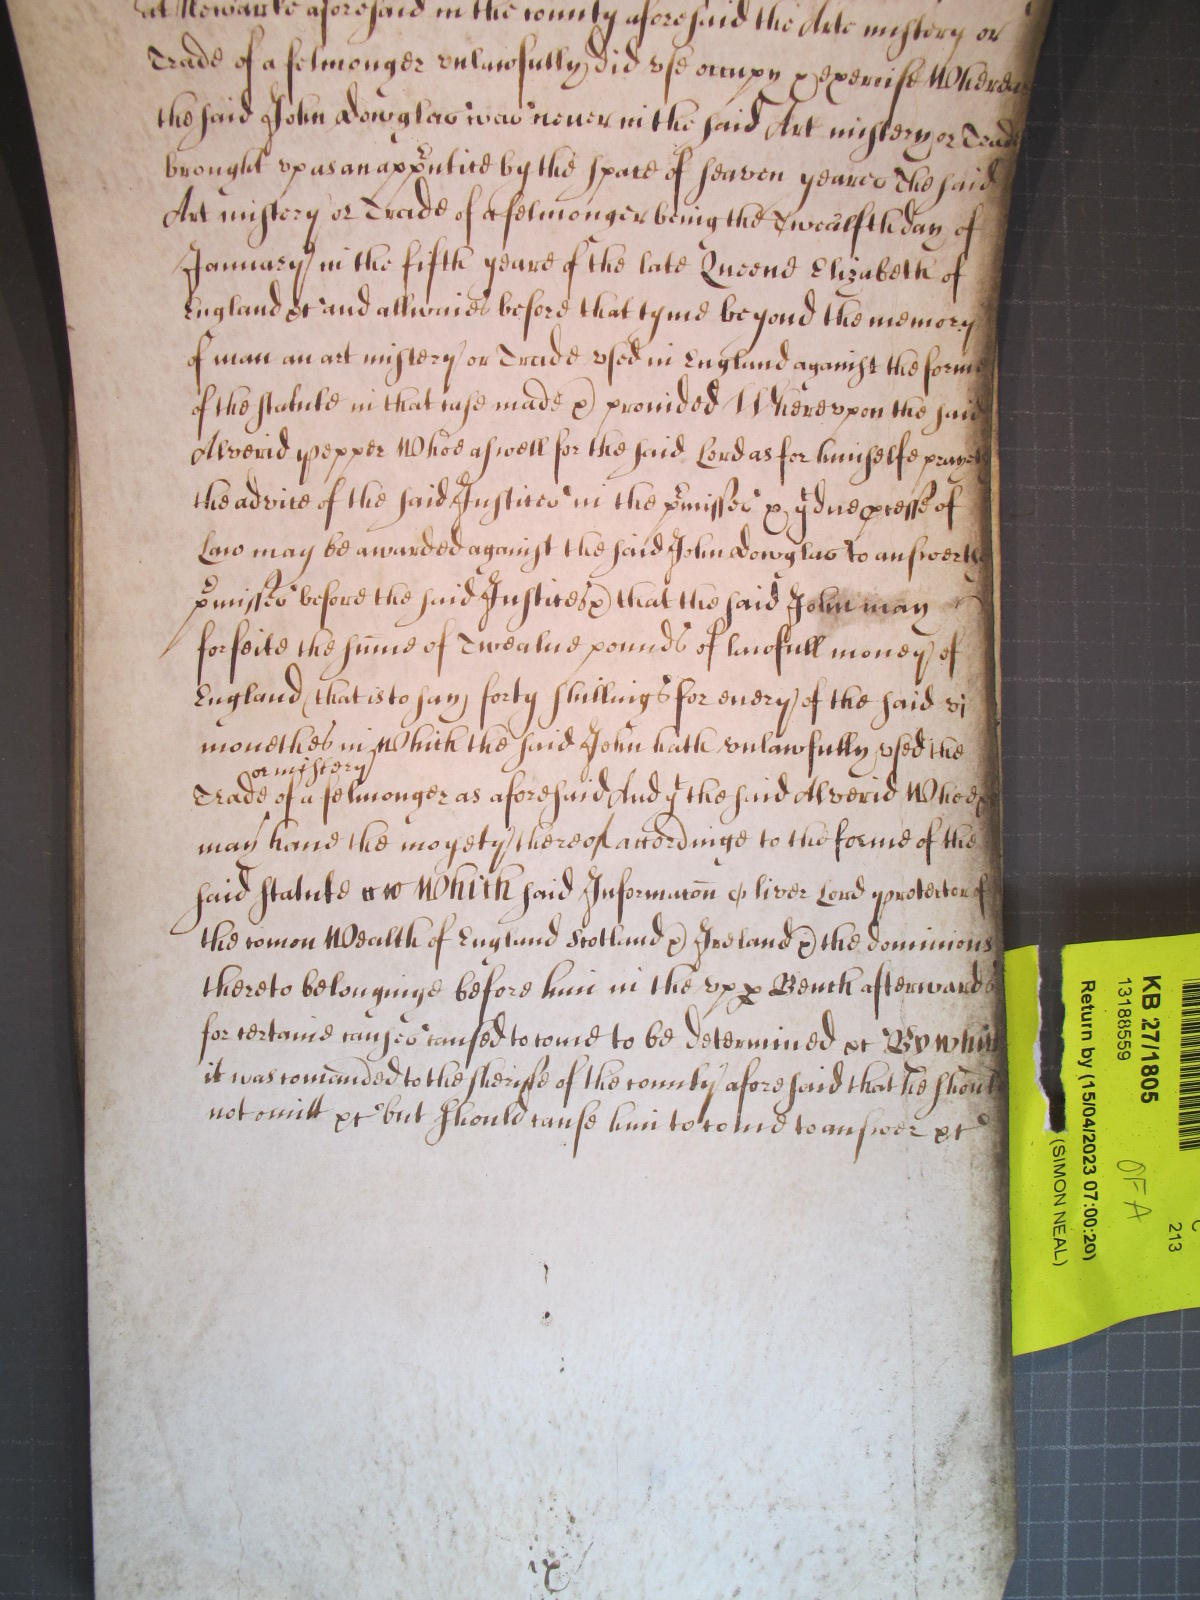 at Newarke aforesaid in the county aforesaid the Arte mistery or
Trade of a felmonger vnlawfully did vse occupy & exercise Whereas
the said John Dowglas was never in the said Art mistery or Trade
brought vp as an apprntice by the space of seaven yeares The said
Art mistery or Trade of a felmonger being the Twealfth day of
January in the fifth yeare of the late Queene Elizabeth of
England &c and allwaies before that tyme beyond the memory
of man an art mistery or Trade vsed in England against the forme
of the statute in that case made & provided Wherevpon the said
Alverid Pepper Whoe aswell for the said Lord as for himselfe prayeth
the advice of the said Justices in the prmisses & yt due processe of
Law may be awarded against the said John Dowglas to answer the
prmisses before the said Justices & that the said John may
forfeite the sume of Twealve pounds of lawfull money of
England (that is to say) forty shillings for every of the said vj
monethes in Which the said John hath vnlawfully vsed the
or mistery
Trade of a felmonger as aforesaid And yt the said Alverid Whoe &c
may have the moyety thereof accordinge to the forme of the
said statute Which said Informacon Oliver Lord Protector of
the comon Wealth of England Scotland & Ireland & the dominions
thereto belonginge before him in the vpp Bench afterwards
for certaine causes caused to come to be determined &c By which
it was comanded to the sheriffe of the county aforesaid that he should
not omitt &c but should cause him to come to answer &c
ix
KB 27/1805
13188559
Return by (15/04/2023 07:00:20)
(SIMON NEAL)
OFA
213